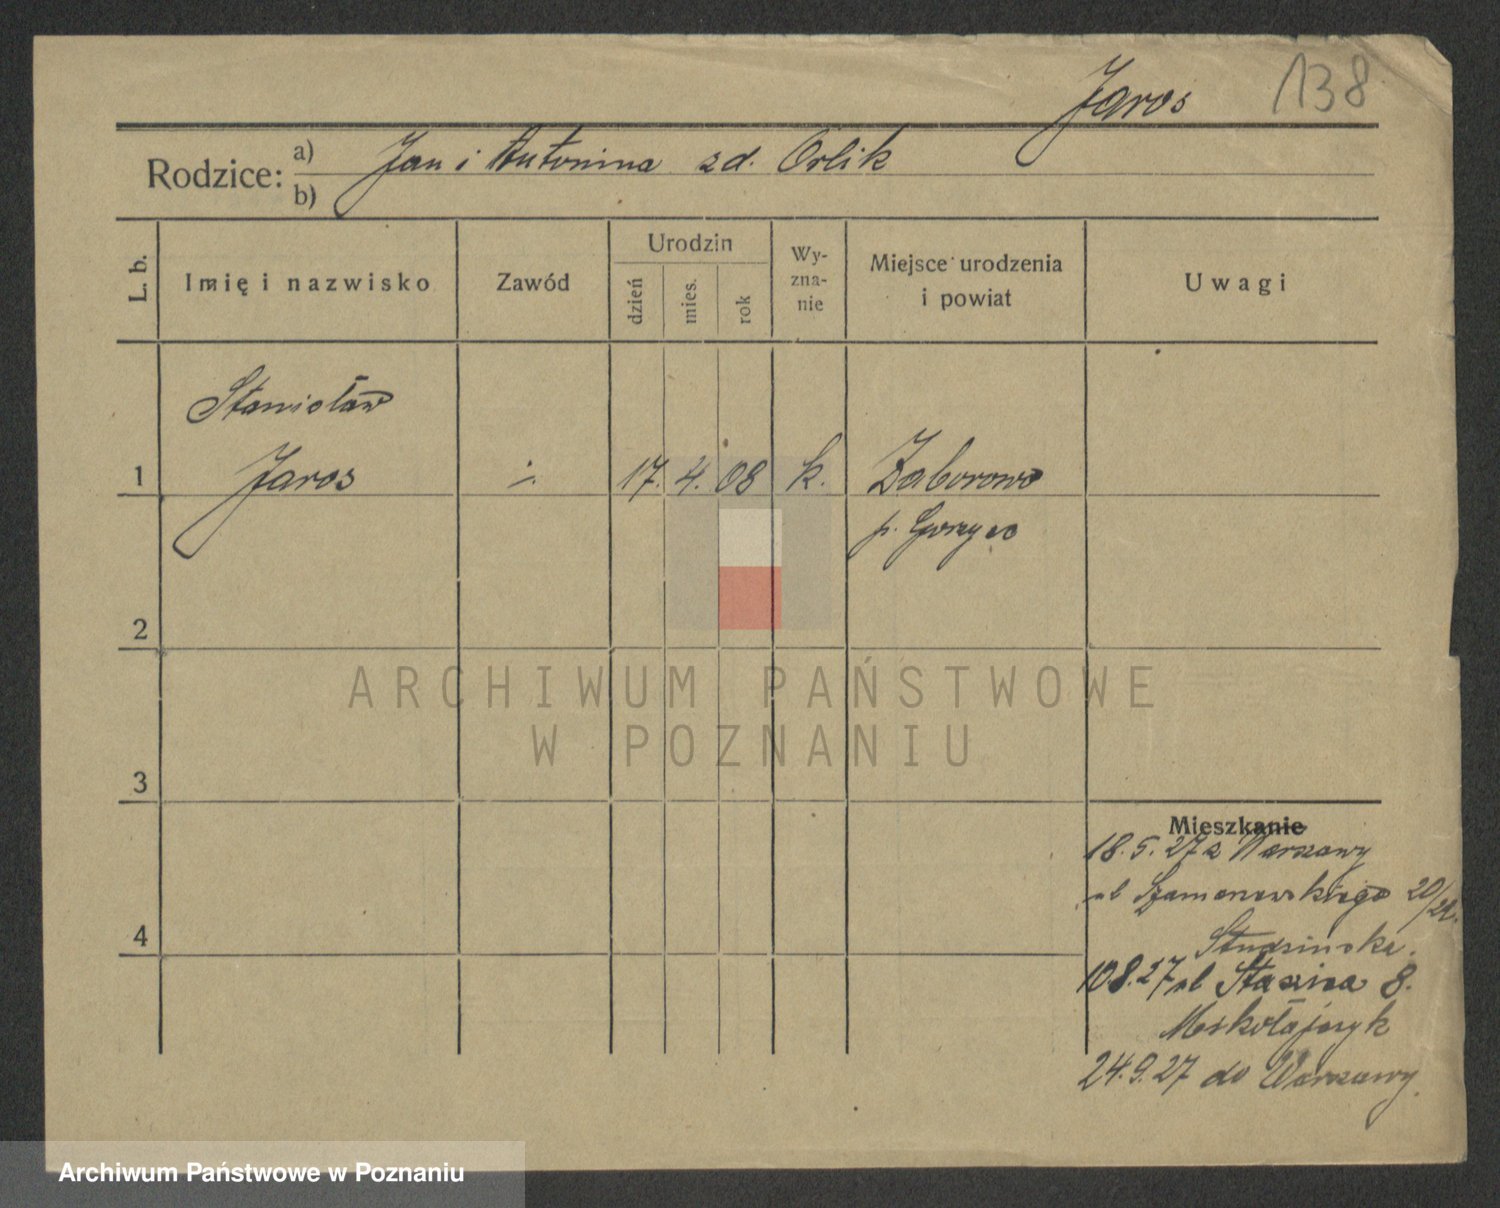 Jaros 138
Rodzice: a) Jan i Antonina zd. Orlik
b)
L. b.
Imię i nazwisko
Zawód
Urodzin
dzień
mies.
rok
Wy-
zna-
nie
Miejsce urodzenia
i powiat
Uwagi
Stanisław
1 Jaros ./. 17. 4. 08 k. Zaborowo
p.
2
3
4
Mieszkanie
18.5.27 z Warszawy
ul 20/21.
10 8.27 ul Staszica 8.
24.9.27 do Warszawy.
ARCHIWUM PAŃSTWOWE
W POZNANIU
Archiwum Państwowe w Poznaniu